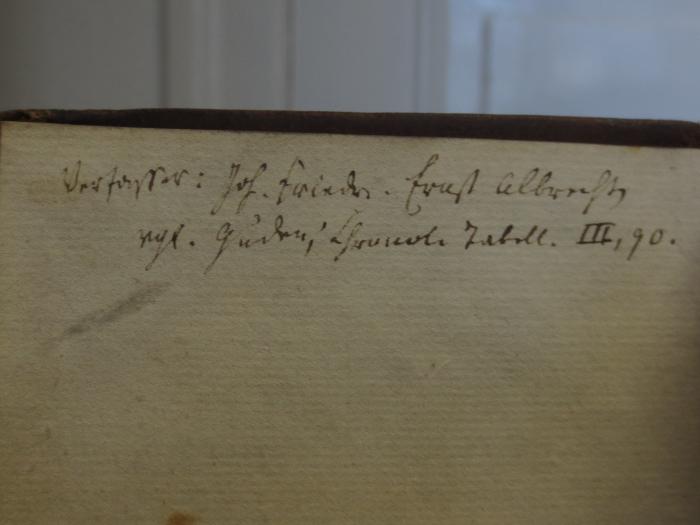 Verfasser: Joh. Friedr. Ernst Albrecht,
vgl. Guden, Chronol. Tabell. III, 90.